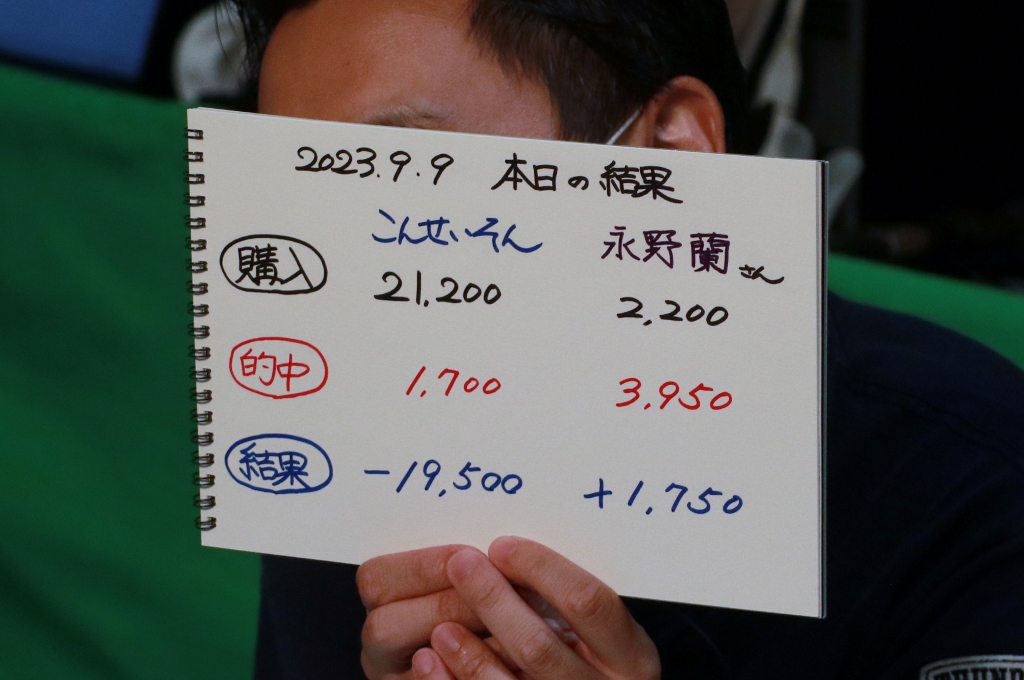 2023.9.9 本日の結果
こんせいそん 永野蘭さん
購入 21,200 2,200
的中 1,700 3,950
結果 -19,500 +1,750